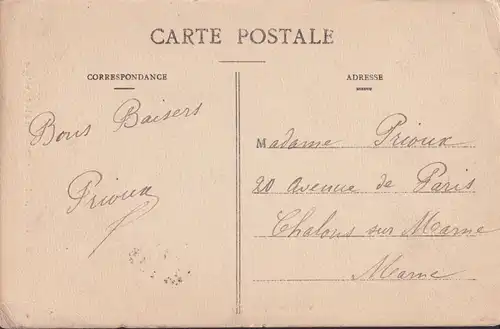 CARTE POSTALE
CORRESPONDANCE
Bons Baisers
Prioux
ADRESSE
Madame Prioux
20 Avenue de Paris
Chalons sur Marne
Marne